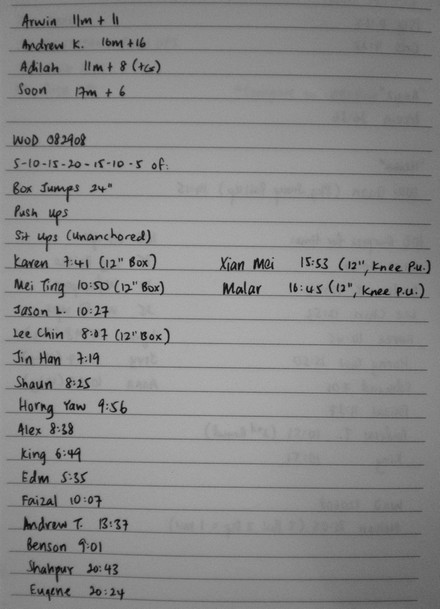 Arwin 11m + 11
Andrew K. 16m +16
Adilah 11m + 8
Soon 17m + 6
WOD 082908
5-10-15-20-15-10-5 of:
Box Jumps 24"
Push ups
Sit ups (unanchored)
Karen 7:41 (12" Box)
Mei Ting 10:50 (12" Box)
Jason L. 10:27
Lee Chin 8:07 (12" Box)
Jin Han 7:19
Shaun 8:25
Horng Yaw 9:56
Alex 8:38
King 6:49
Edm 5:35
Faizal 10:07
Andrew T. 13:37
Benson 9:01
Shahpur 20:43
Eugene 20:24
Xian Mei 15:53 (12", Knee P.U.)
Malar 16:45 (12", Knee P.U.)